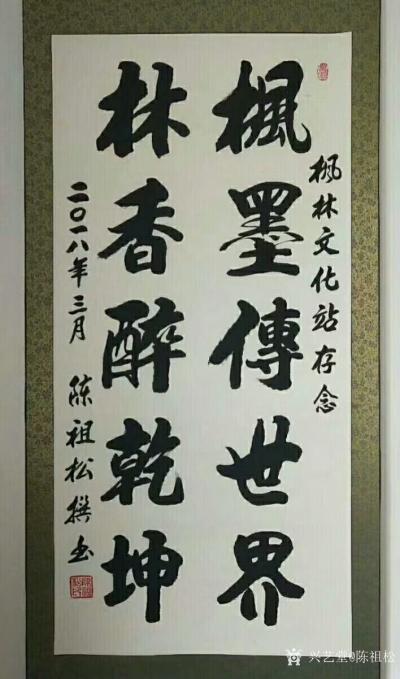 枫林文化站存念
楓墨傳世界
林香醉乾坤
二〇一八年三月 陈祖松撰书
兴艺堂@陈祖松